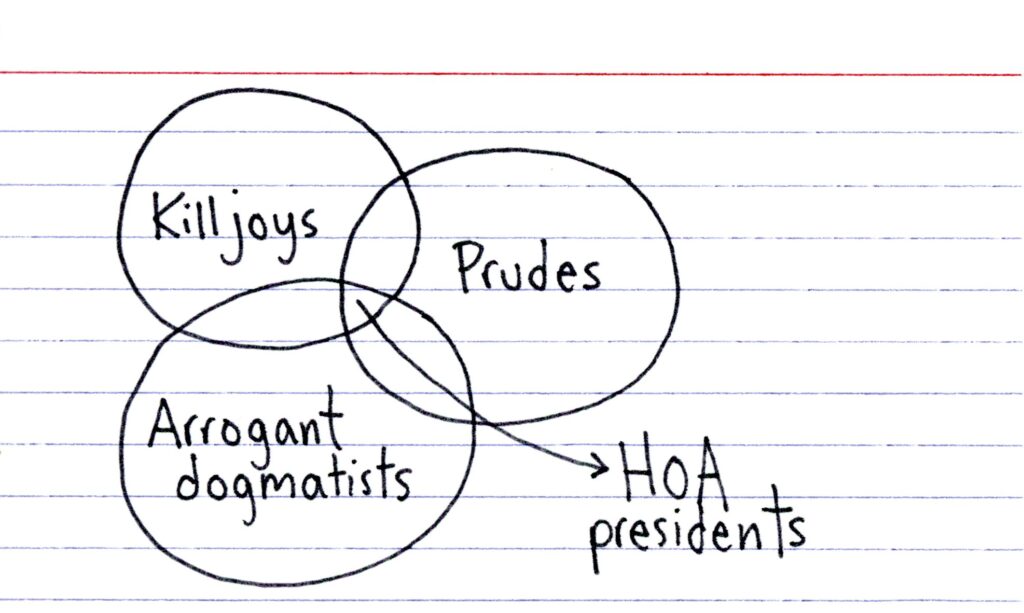 Killjoys
Prudes
Arrogant
dogmatists
HOA
presidents